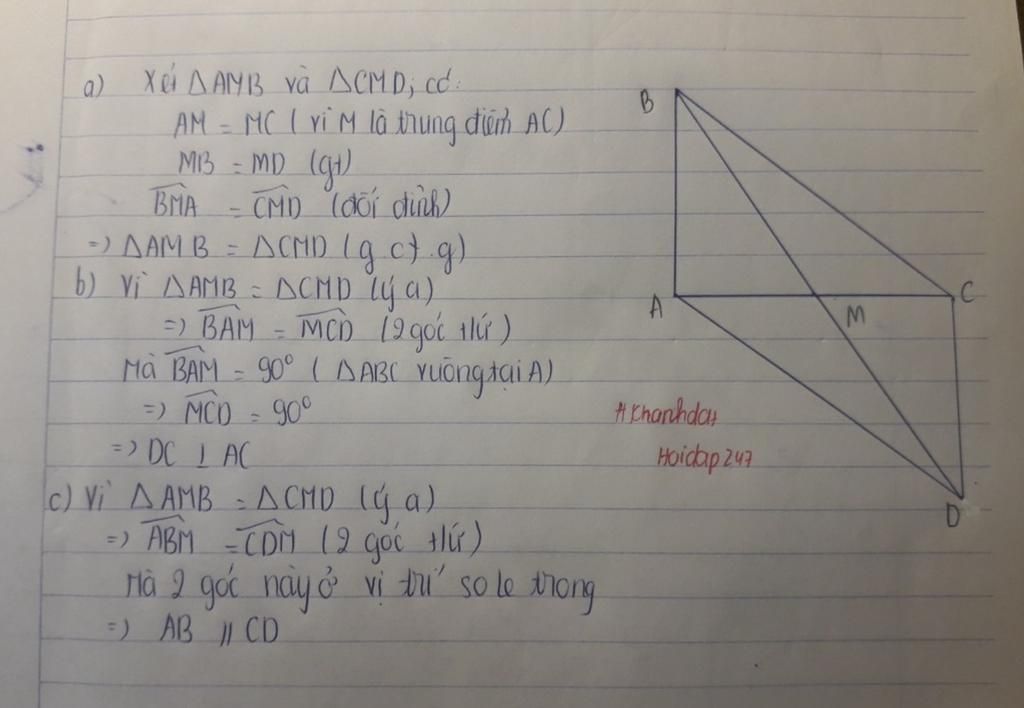 a) Xét △AMB và △CMD, có:
AM = MC ( vì M là trung điểm AC)
MB = MD (gt)
BMA = CMD (đối đỉnh)
=> △AMB = △CMD (g.c.g)
b) Vì △AMB = △CMD (ý a)
=> BAM = MCD (2 góc tứ)
Mà BAM = 90° ( △ABC vuông tại A)
=> MCD = 90°
=> DC ⊥ AC
c) Vì △AMB = △CMD (ý a)
=> ABM = CDM (2 góc tứ)
Mà 2 góc này ở vị trí so le trong
=> AB // CD
B
A
M
C
D
#Khanhdat
Hoidap247